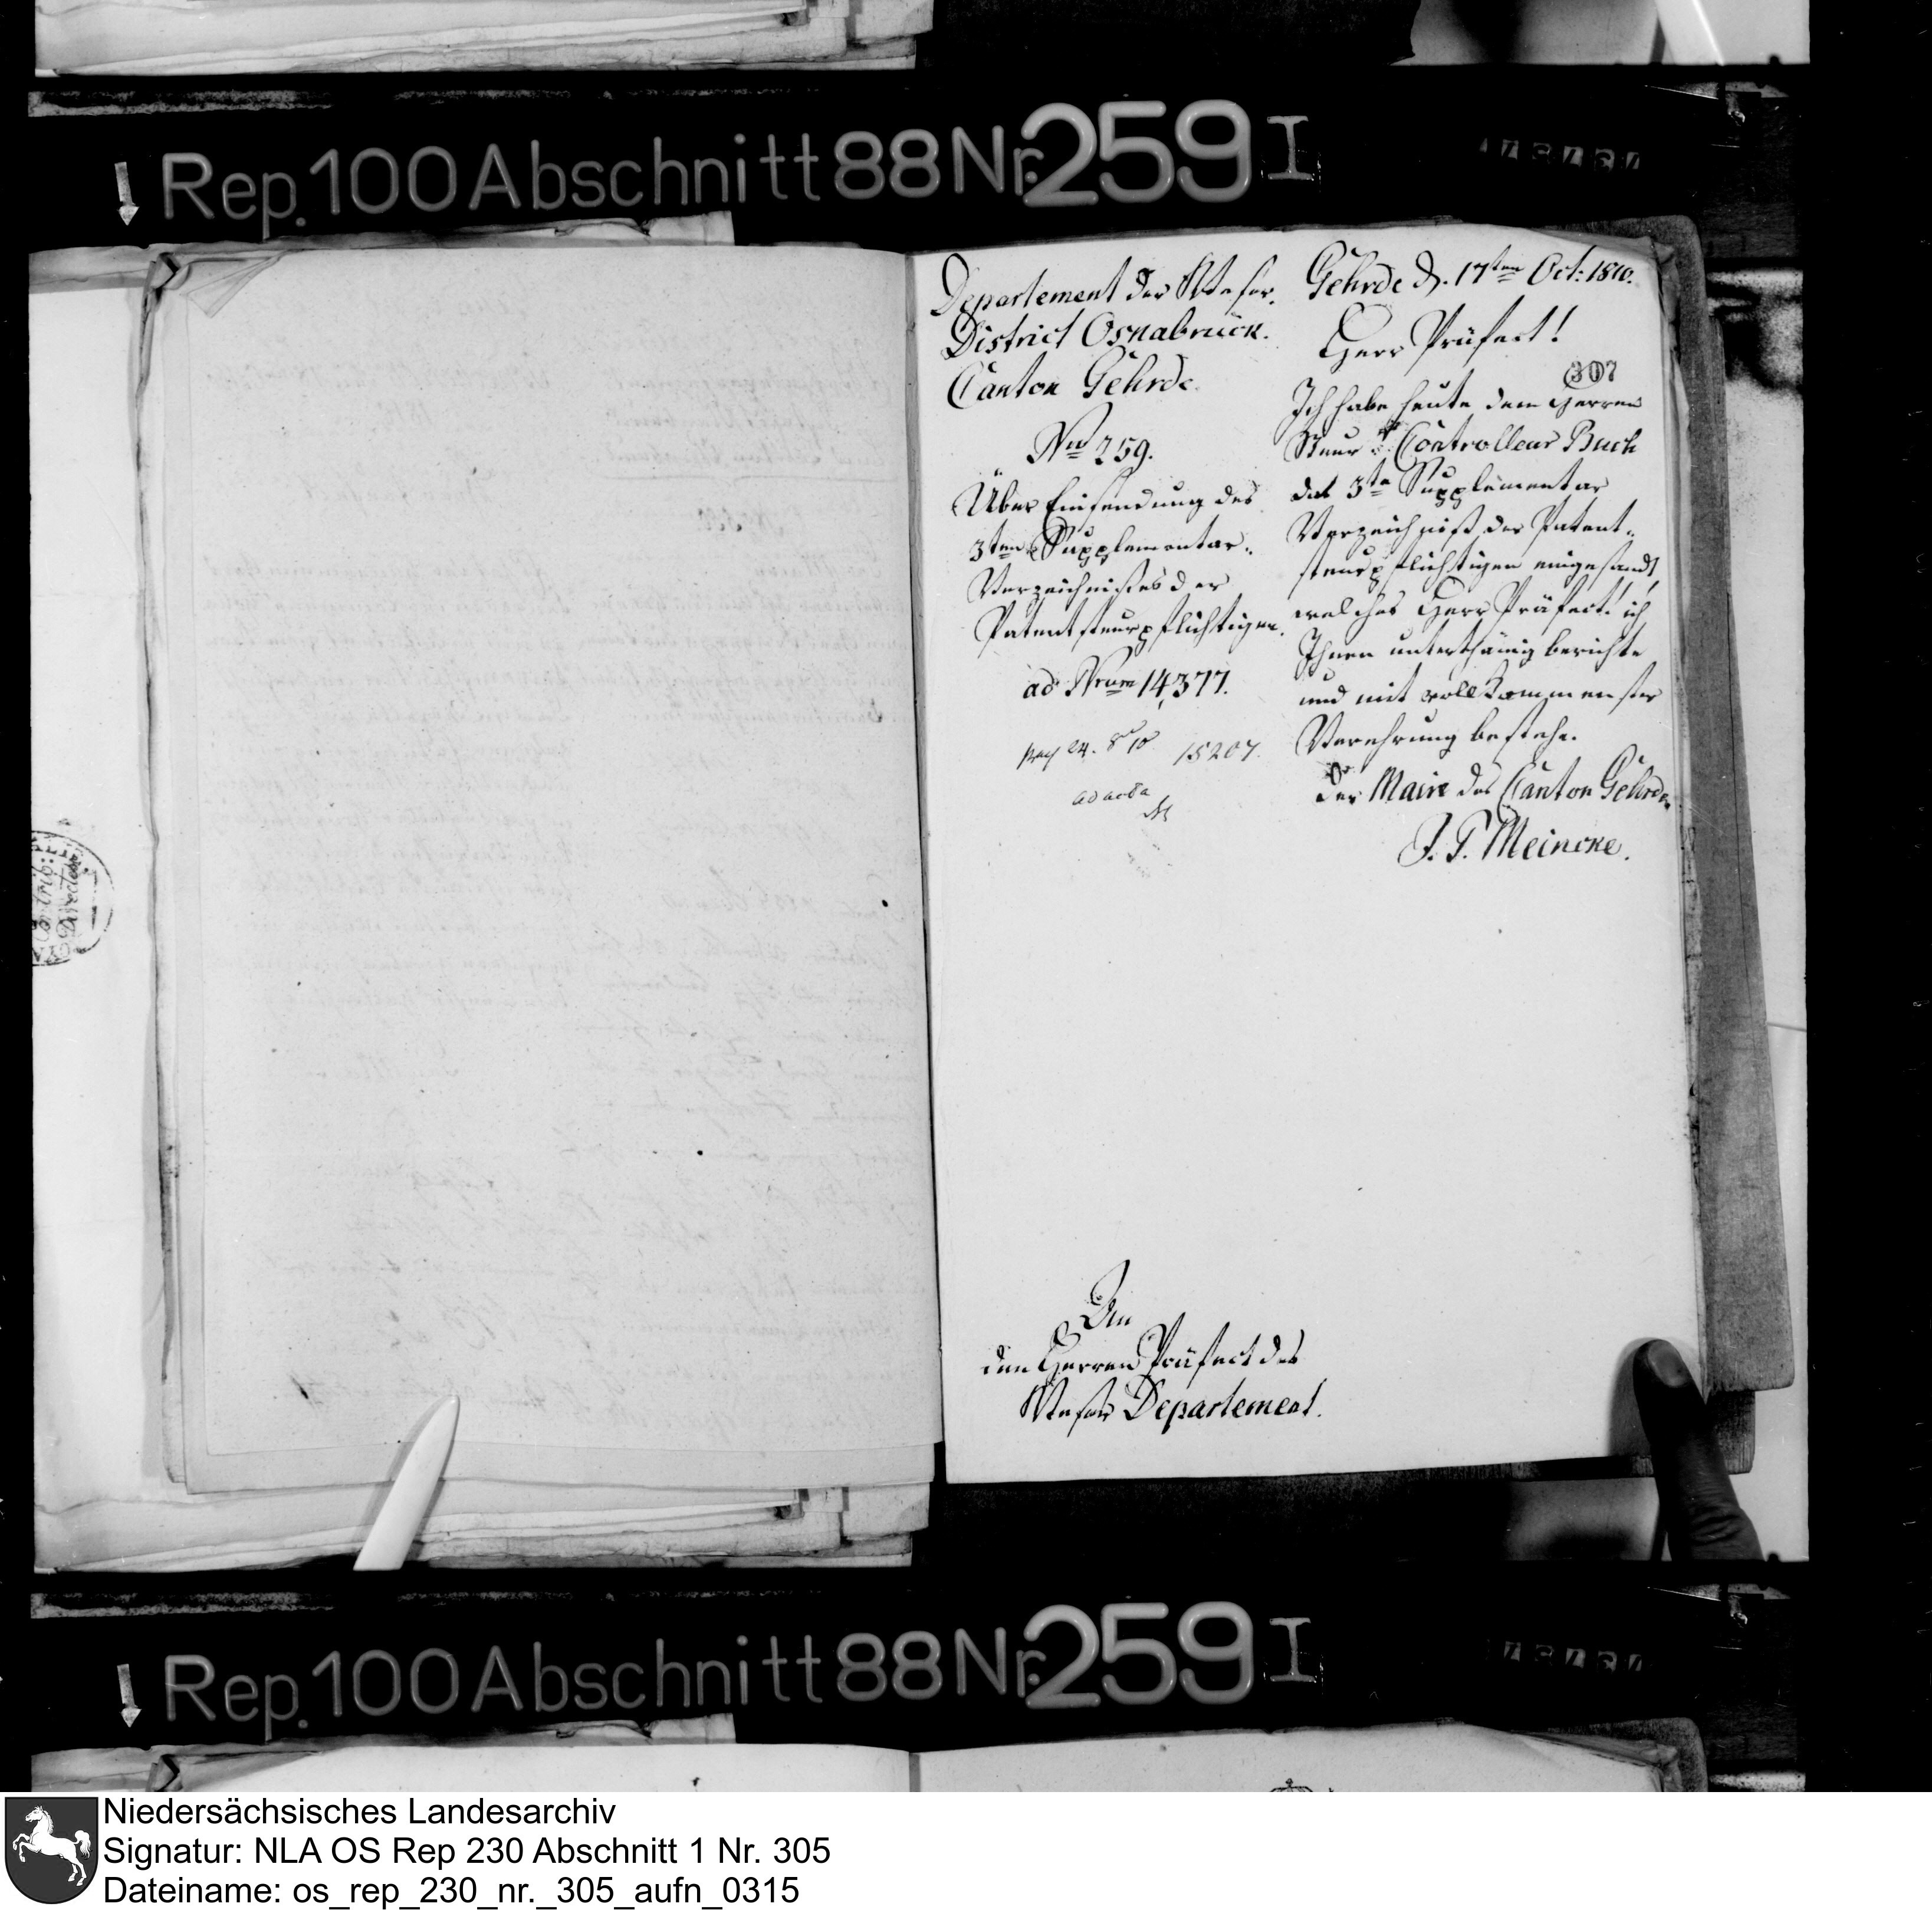 Rep. 100 Abschnitt 88 Nr. 259 I
Departement der Weser.
District Osnabrück.
Canton Gehrde.
Nro 259.
Über Einsendung des
3ten Supplementar-
Verzeichnißes der
Patentsteuerpflichtigen.
ad Num 14,377.
15207.
ad acta
Gehrde d. 17ten Oct: 1810.
Herr Präfect!
307
Ich habe heute dem Herren
Steuer Controlleur Buch
das 3te Supplementar
Verzeichniß der Patent-
steuerpflichtigen eingesandt
welches Herr Präfect! ich
Ihnen unterthänig berichte
und mit vollkommenster
Verehrung bestehe.
Der Maire des Canton Gehrde.
J. G. Meincke.
An
den Herren Präfect des
Weser Departement.
Contrib:
Direction
Rep. 100 Abschnitt 88 Nr. 259 I
Niedersächsisches Landesarchiv
Signatur: NLA OS Rep 230 Abschnitt 1 Nr. 305
Dateiname: os_rep_230_nr._305_aufn_0315